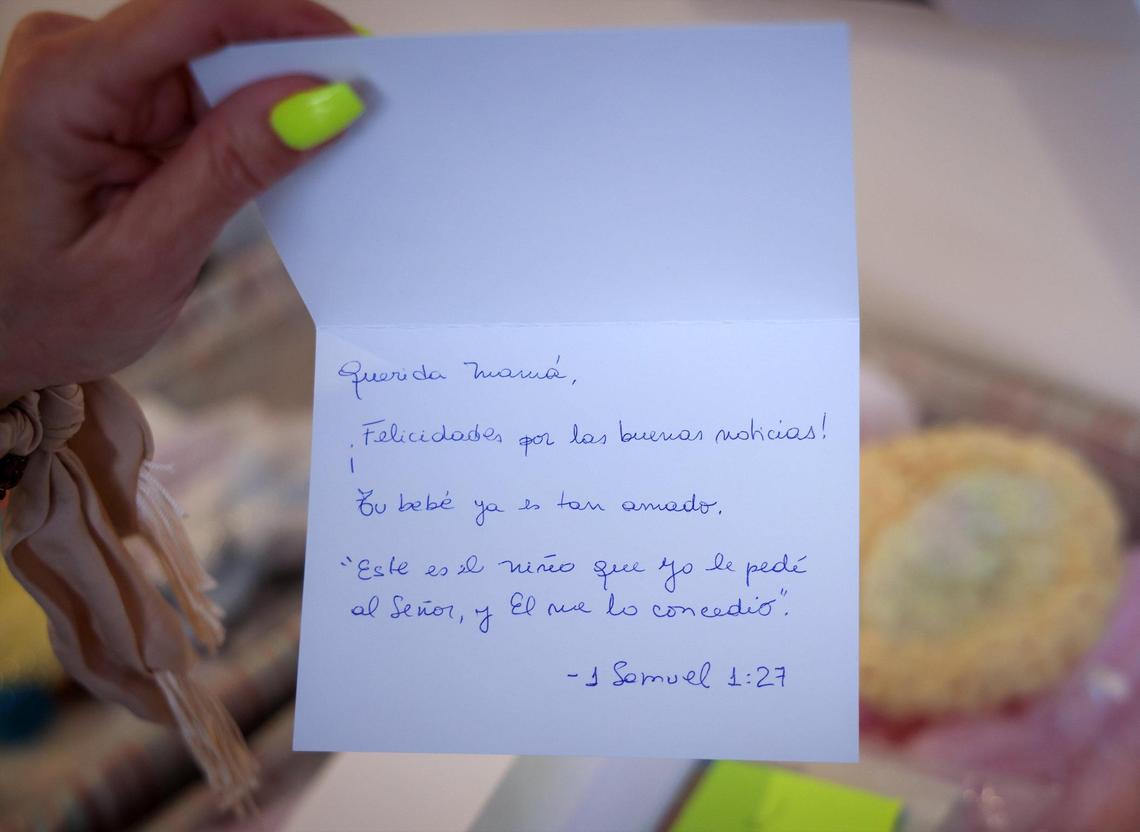 Querida Mamá,
¡Felicidades por las buenas noticias!
Tu bebé ya es tan amado.
"Este es el niño que yo le pedí
al Señor, y El me lo concedió".
-1 Samuel 1:27